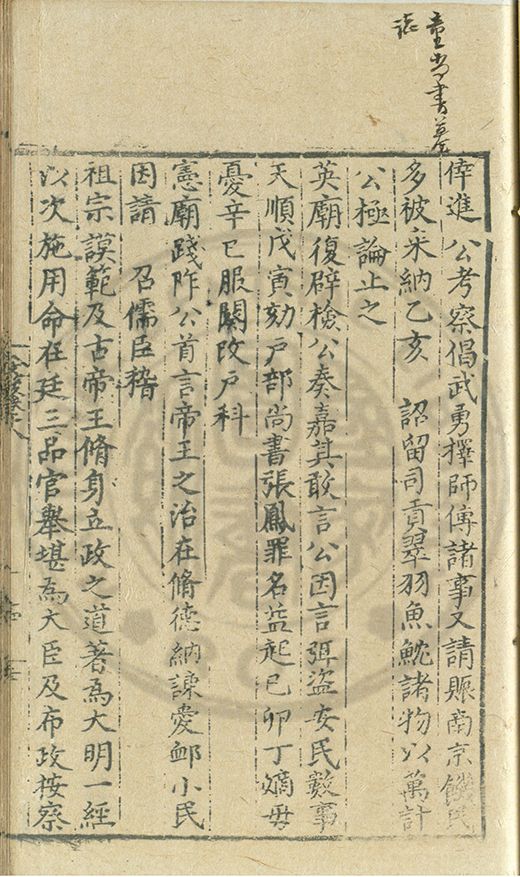 童尚書墓
誌
倖進　公考察倡武勇擇師傅諸事又請賑南京饑民
多被采納乙亥　詔留司貢翠羽魚魫諸物以萬計
公極論止之
英廟復辟檢公奏嘉其敢言公因言弭盗安民數事
天順戊寅劾户部尚書張鳳罪名益起己卯丁嫡母
憂辛巳服闋改户科
憲廟踐阼公首言帝王之治在脩德納諫愛䘏小民
因請　召儒臣稽
祖宗謨範及古帝王脩身立政之道著為大明一經
以次施用命在廷三品官舉堪為大臣及布政按察